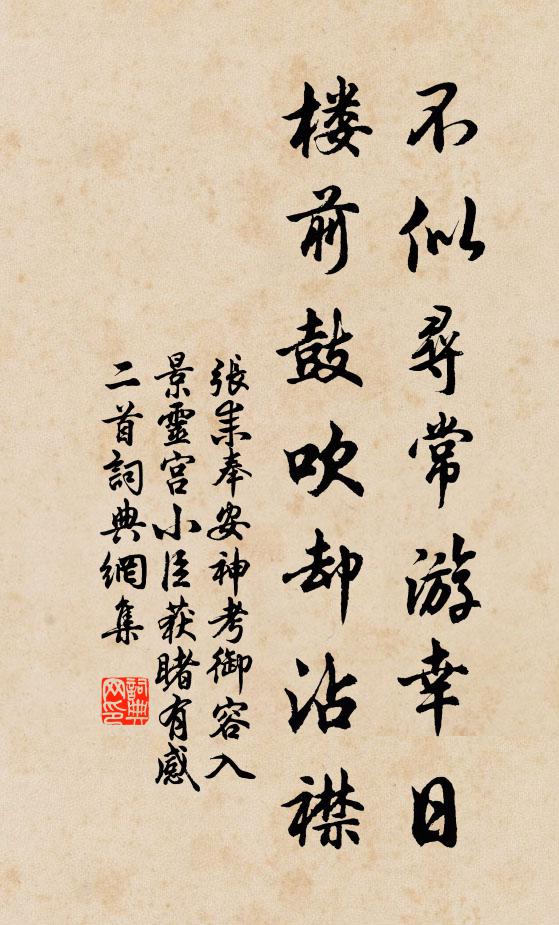 不似尋常游幸日
楼前鼓吹却沾襟
張耒奉安神考御容入
景靈宫小臣获睹有感
二首詞典網集
詞典網印